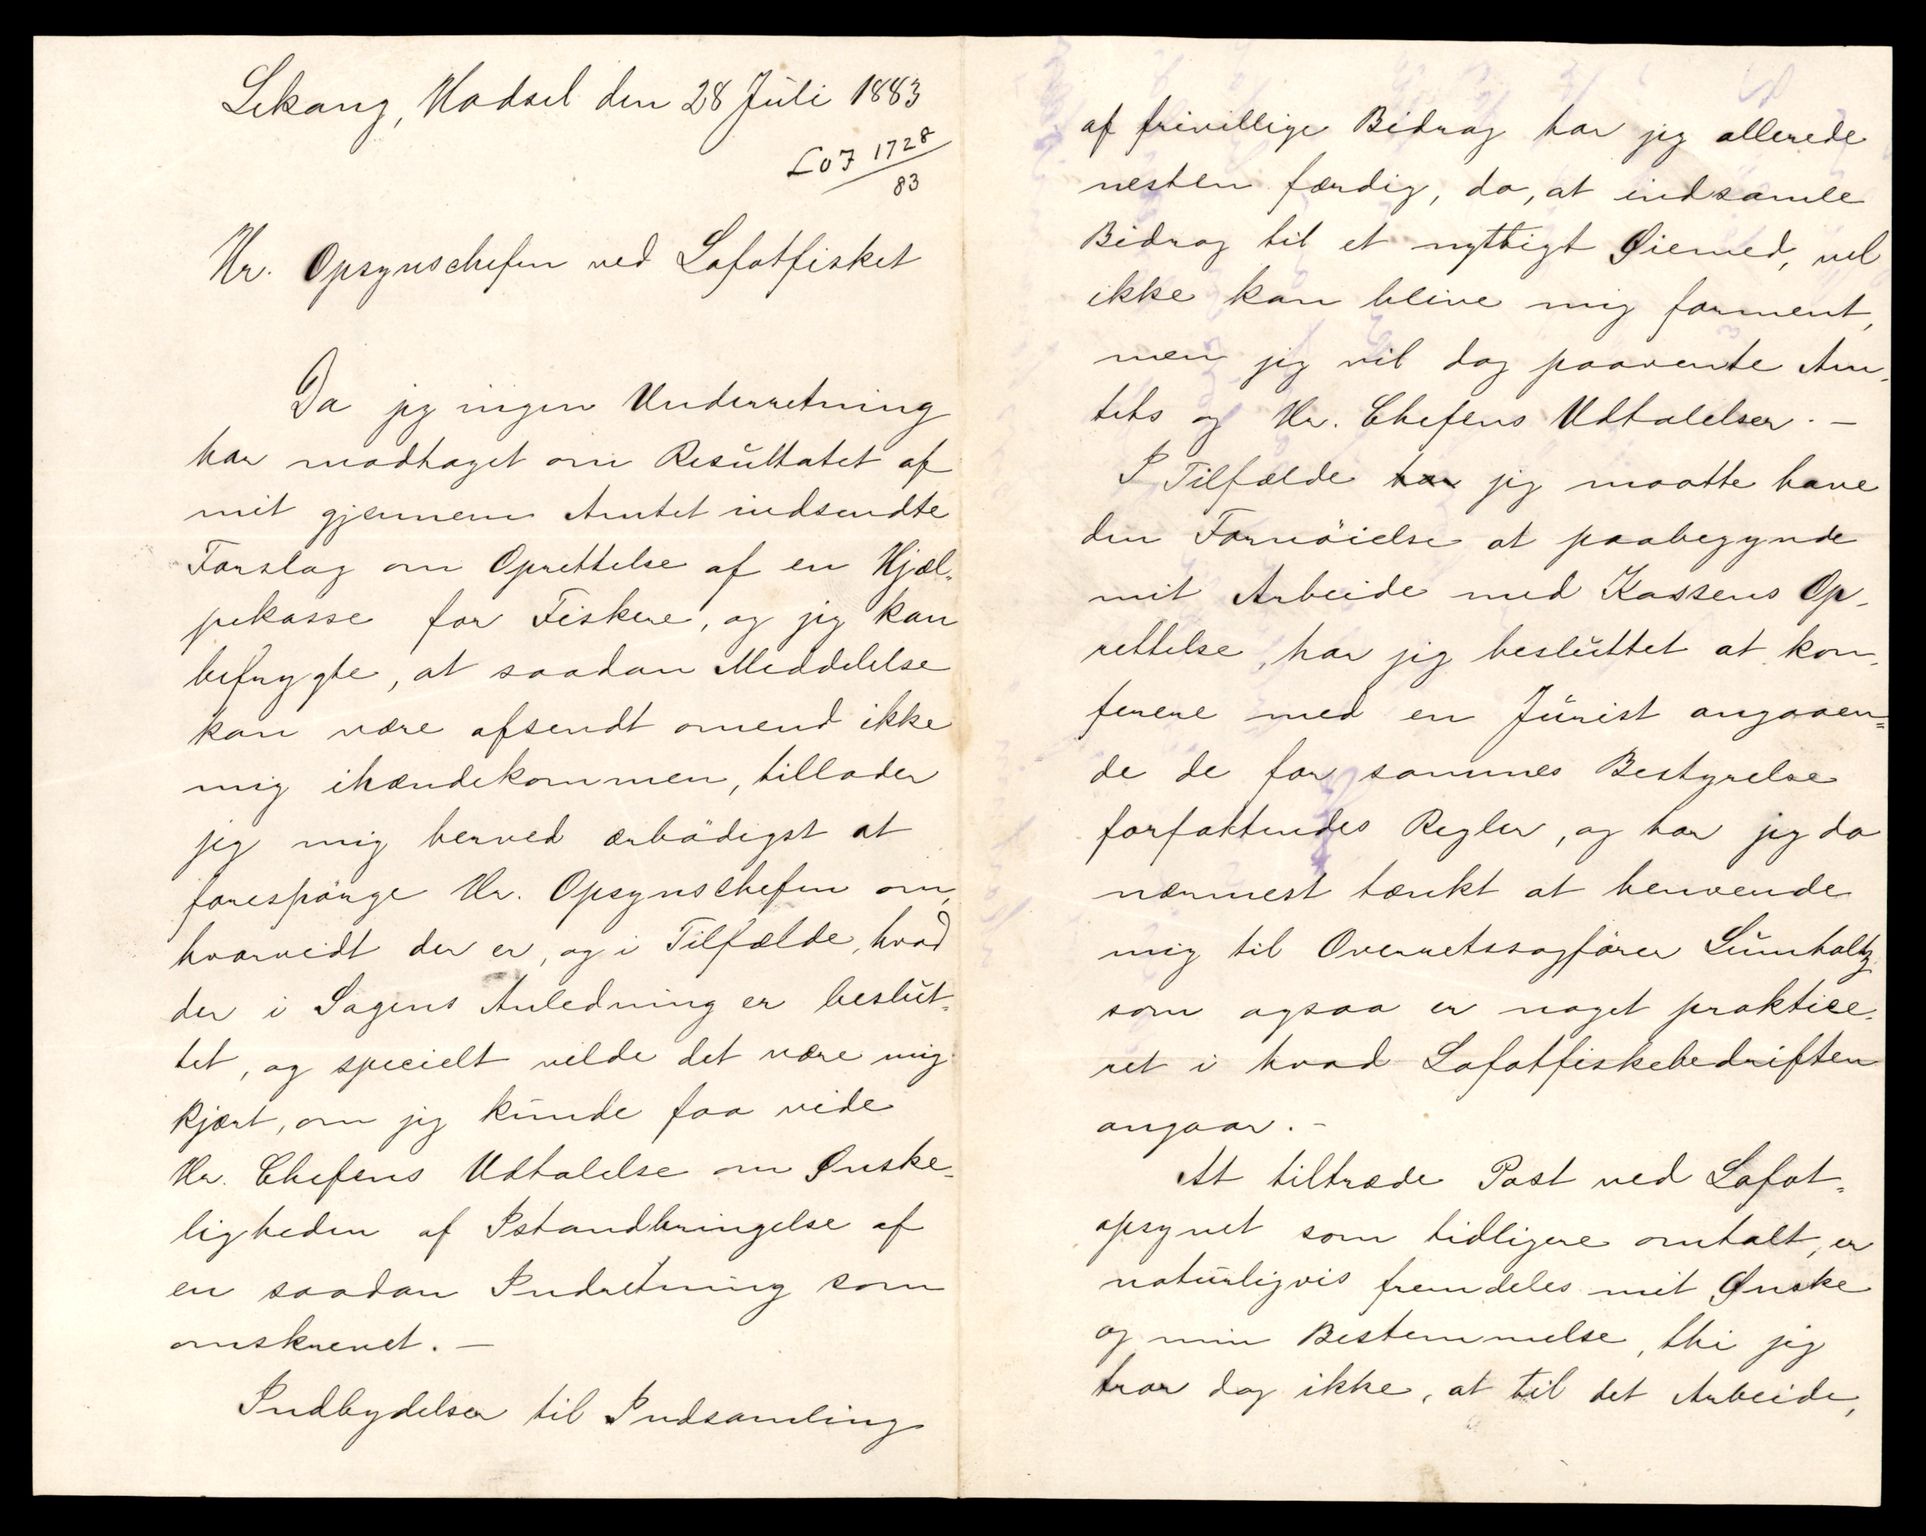 Lekang, Hadsel den 28 Juli 1883
L07 1728/83
Hr. Opsynschefen ved Lofotfisket
Da jeg ingen Underretning
har modtaget om Resultatet af
mit gjennem Amtet indsendte
Forslag om Oprettelse af en Hjæl-
pekasse for Fiskere, og jeg kan
befrygte, at saadan Meddelelse
kan være afsendt omend ikke
mig ihændekommen, tillader
jeg mig herved ærbödigst at
forespörge Hr. Opsynschefen om,
hvorvidt der er, og i Tilfælde, hvad
der i Sagens Anledning er beslut-
tet, og specielt vilde det være mig
kjært, om jeg kunde faa vide
Hr. Chefens Udtalelse om Ønske-
ligheden af Istandbringelse af
en saadan Indretning som
omskrevet. –
Indbydelser til Indsamling
af frivillige Bidrag har jeg allerede
nesten færdig, da, at indsamle
Bidrag til et nyttigt Øiemed, vel
ikke kan blive mig forment,
men jeg vil dog paavente Am-
tets og Hr. Chefens Udtalelser. –
I Tilfælde har jeg maatte have
den Fornöielse at paabegynde
mit Arbeide med Kassens Op-
rettelse, har jeg besluttet at kon-
ferere med en Jurist angaaen=
de de for sammes Bestyrelse
forfattendes Regler, og har jeg da
nærmest tænkt at henvende
mig til Overretssagförer Lumholtz
som ogsaa er noget praktice-
ret i hvad Lofotfiskebedriften
angaar. –
At tiltræde Post ved Lofot-
opsynet som tidligere omtalt, er
naturligvis fremdeles mit Ønske
og min Bestemmelse, thi jeg
tror dog ikke, at til det Arbeide,